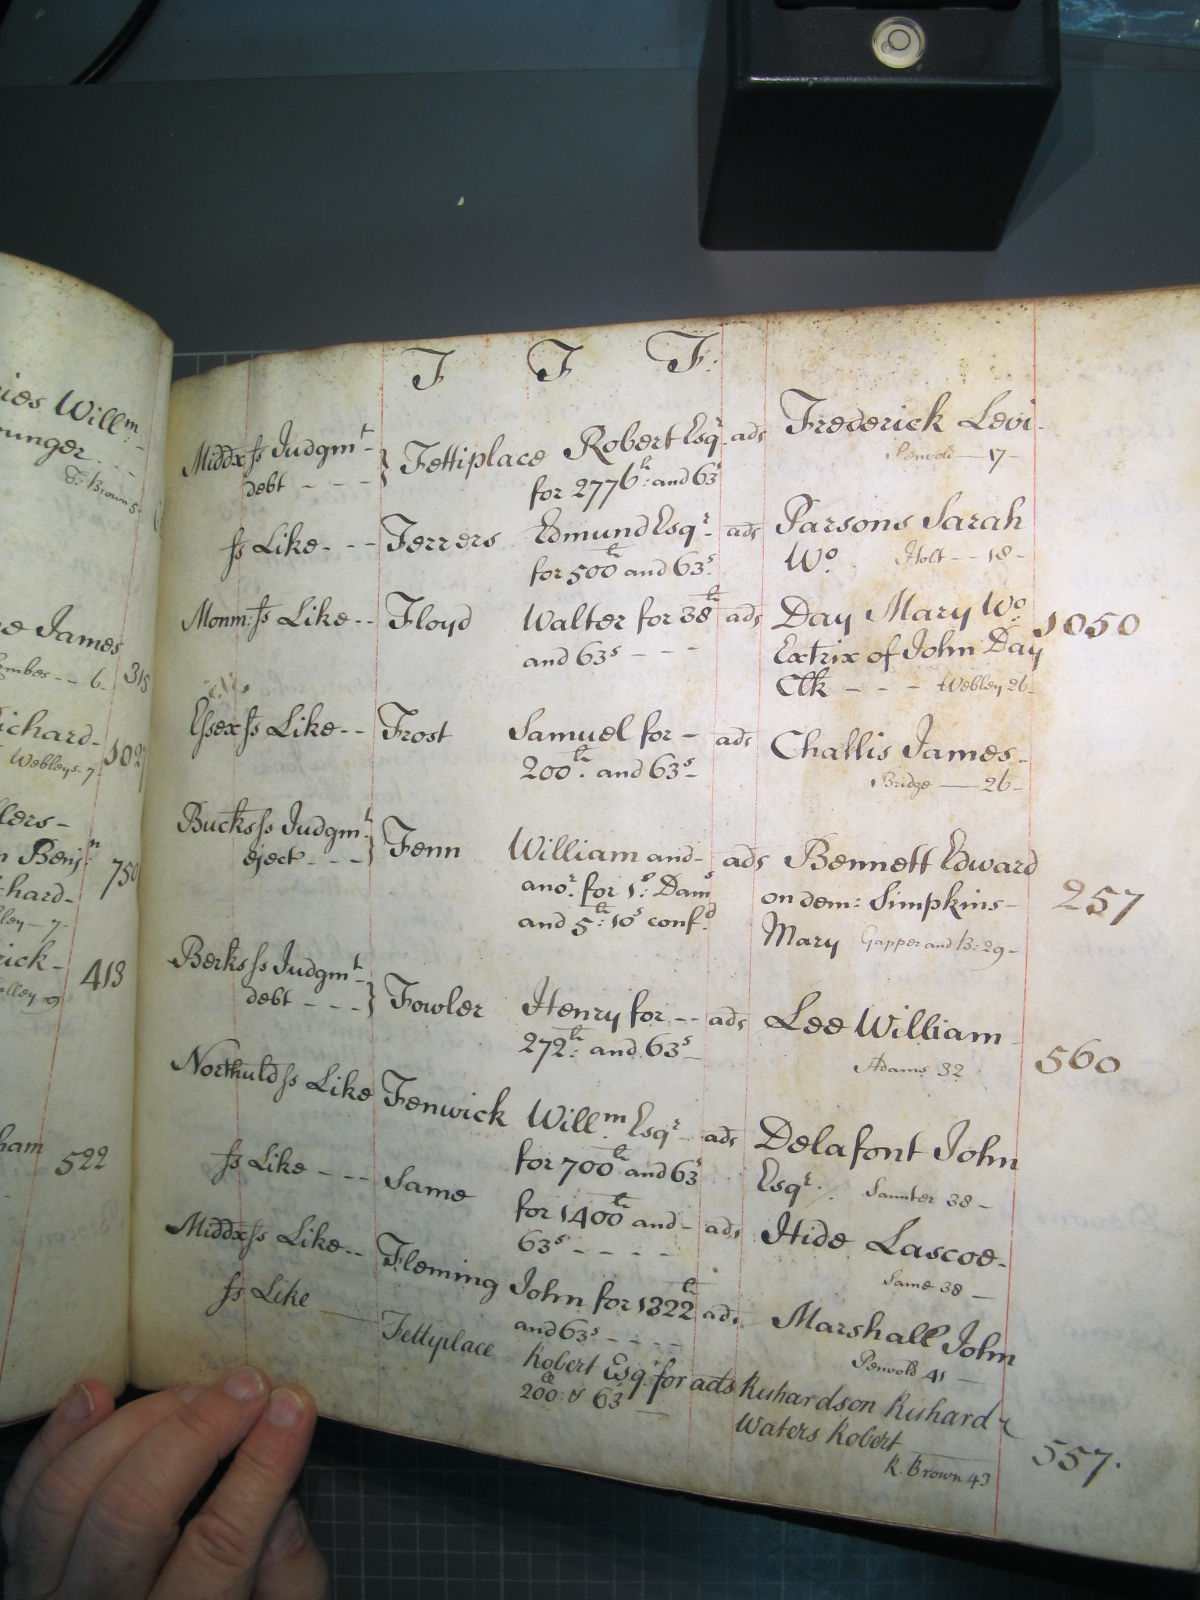 ies Will^m
ounger
T: Brown 5
e James
ember -- 6. 315
ichard-
Webleys 7 1027
llers-
n Benj^n
750
chard-
ley-7-
rick-
413
elley 9
ham
522
F F F.
Middx ſs Judgm^t debt - - - } Fettiplace Robert Esq^r ads Frederick Levi
for 2776^li: and 63^s Penvold — 17 -
ſs Like - - - Ferrers Edmund Esq^r ads Parsons Sarah
for 500^li and 63^s. W^o Holt -- 18 -
Monm: ſs Like - - Floyd Walter for 38^li ads Day Mary W^o 1050
and 63^s - - - Extrix of John Day
Clk - - - Webley 26
Essex ſs Like - - Frost Samuel for - ads Challis James -
200^li: and 63^s - Bridge — 26 -
Bucks ſs Judgm^t eject - - - } Fenn William and - ads Bennett Edward
ano^r: for 1^s: Dam^s on dem: Simpkins - 257
and 5^li: 10^s conf^d Mary Gapper and B: 29 -
Berks ſs Judgm^t debt - - - } Fowler Henry for -- ads Lee William
272^li: and 63^s - Adams 32 560
Northuld ſs Like Fenwick Will^m Esq^r - ads Delafont John
for 700^li and 63^s Esq^r: Saunter 38 -
ſs Like - - - Same for 1400^li and - ads Hide Lascoe -
63^s - - - - Same 38 —
Middx ſs Like - - Fleming John for 1322^li ads Marshall John
and 63^s - - - - Penvold 41 —
ſs Like — Fettyplace Robert Esq^r for ads Richardson Richard &
200^li: & 63^s — Waters Robert
R. Brown 43 557.